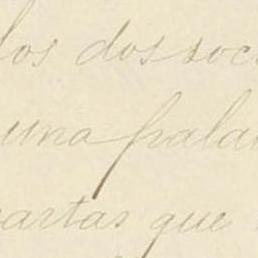 los dos soc
una pala
cartas que